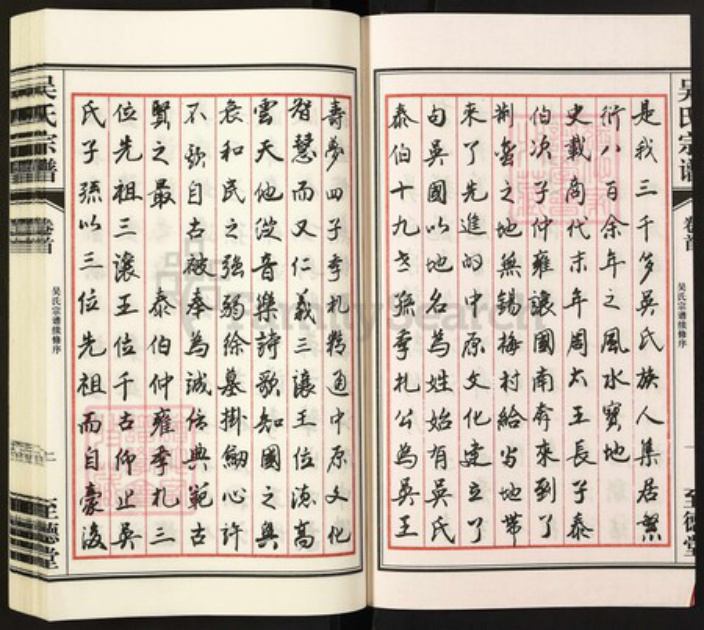 是我三千多吴氏族人集居繁
衍八百余年之風水寳地
史載商代末年周太王長子泰
伯次子仲雍讓國南奔來到了
荆蛮之地無锡梅村給当地带
来了先進的中原文化建立了
句吴國以地名為姓始有吴氏
泰伯十九世孫季札公為吴王
吴氏宗谱
卷首
吴氏宗谱续修序
一
至德堂
壽夢四子季札精通中原文化
智慧而又仁義三讓王位德高
雲天他從音樂詩歌知國之興
衰和民之强弱徐墓掛劍心許
不欺自古被奉為誠信典範古
賢之最 泰伯仲雍季札三
位先祖三讓王位千古仰止吴
氏子孫以三位先祖而自豪後
吴氏宗谱
卷首
吴氏宗谱续修序
至德堂